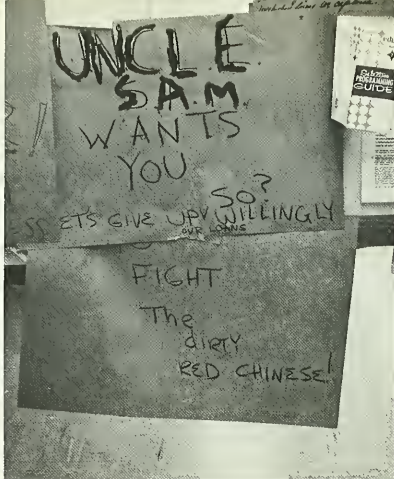 UNCLE
S.A.M.
WANTS
YOU
SO?
LET'S GIVE UP WILLINGLY
OUR LOANS
FIGHT
The
dirty
RED CHINESE!
PROGRAMMING
GUIDE